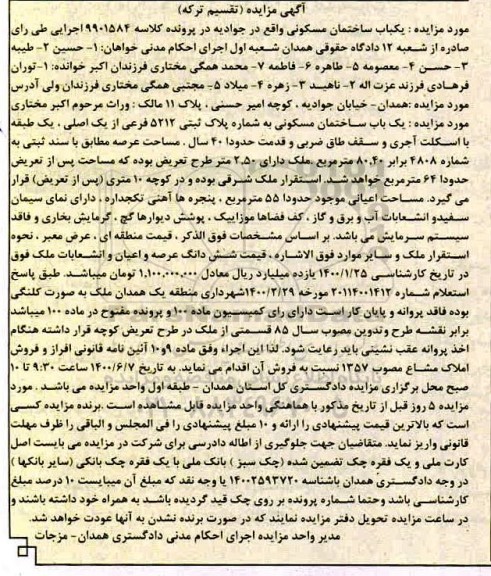 آگهی مزایده (تقسیم ترکه)
مورد مزایده : یکباب ساختمان مسکونی واقع در جوادیه در پرونده کلاسه ۹۹۰۱۵۸۴ اجرایی طی رای
صادره از شعبه ۱۲ دادگاه حقوقی همدان شعبه اول اجرای احکام مدنی خواهان: ۱- حسین ۲- طیبه
۳- حسن ۴- معصومه ۵- طاهره ۶- فاطمه ۷- محمد همگی مختاری فرزندان اکبر خوانده: ۱- توران
فرهادی فرزند عزت اله ۲- ناهید ۳- زهره ۴- میلاد ۵- مجتبی همگی مختاری فرزندان ولی آدرس
مورد مزایده :همدان- خیابان جوادیه ، کوچه امیر حسنی ، پلاک ۱۱ مالک : وراث مرحوم اکبر مختاری
مورد مزایده : یک باب ساختمان مسکونی به شماره پلاک ثبتی ۵۲۱۲ فرعی از یک اصلی ، یک طبقه
با اسکلت آجری و سقف طاق ضربی و قدمت حدودا ۴۰ سال . مساحت عرصه مطابق با سند ثبتی به
شماره ۴۸۰۸ برابر ۸۰,۴۰ مترمربع .ملک دارای ۲,۵۰ متر طرح تعریض بوده که مساحت پس از تعریض
حدودا ۶۴ مترمربع خواهد شد. استقرار ملک شرقی بوده و در کوچه ۱۰ متری (پس از تعریض) قرار
می گیرد. مساحت اعیانی موجود حدودا ۵۵ مترمربع ، پنجره ها آهنی تکجداره ، دارای نمای سیمان
سفیدو انشعابات آب و برق و گاز ، کف فضاها موزاییک ، پوشش دیوارها گچ ، گرمایش بخاری و فاقد
سیستم سرمایش می باشد. بر اساس مشخصات فوق الذکر ، قیمت منطقه ای ، عرض معبر ، نحوه
استقرار ملک و سایر موارد فوق الاشاره ، قیمت شش دانگ عرصه و اعیان و انشعابات ملک فوق
در تاریخ کارشناسی ۱۴۰۰/۱/۲۵ یازده میلیارد ریال معادل ۱,۱۰۰,۰۰۰,۰۰۰ تومان میباشد. طبق پاسخ
استعلام شماره ۲۰۱۱۴۰۰۱۴۱۲ مورخه ۱۴۰۰/۳/۲۹ شهرداری منطقه یک همدان ملک به صورت کلنگی
بوده فاقد پروانه و پایان کار است دارای رای کمیسیون ماده ۱۰۰ و پرونده مفتوح در ماده ۱۰۰ میباشد
برابر نقشه طرح و تدوین مصوب سال ۸۵ قسمتی از ملک در طرح تعریض کوچه قرار داشته هنگام
اخذ پروانه عقب نشینی باید رعایت شود. لذا این اجراء وفق ماده ۹و۱۰ آئین نامه قانونی افراز و فروش
املاک مشاع مصوب ۱۳۵۷ نسبت به فروش آن اقدام می نماید. به تاریخ ۱۴۰۰/۶/۷ ساعت ۹:۳۰ تا ۱۰
صبح محل برگزاری مزایده دادگستری کل استان همدان - طبقه اول واحد مزایده می باشد . مورد
مزایده ۵ روز قبل از تاریخ مذکور با هماهنگی واحد مزایده قابل مشاهده است .برنده مزایده کسی
است که بالاترین قیمت پیشنهادی را ارائه و ۱۰ مبلغ پیشنهادی را فی المجلس و الباقی را ظرف مهلت
قانونی واریز نماید. متقاضیان جهت جلوگیری از اطاله دادرسی برای شرکت در مزایده می بایست اصل
کارت ملی و یک فقره چک تضمین شده (چک سبز ) بانک ملی یا یک فقره چک بانکی (سایر بانکها )
در وجه دادگستری همدان باشناسه ۱۴۰۰۲۵۹۳۷۲۰ یا وجه نقد که مبلغ آن میبایست ۱۰ درصد مبلغ
کارشناسی باشد وحتما شماره پرونده بر روی چک قید گردیده باشد به همراه خود داشته باشند و
در ساعت مزایده تحویل دفتر مزایده نمایند که در صورت برنده نشدن به آنها عودت خواهد شد.
مدیر واحد مزایده اجرای احکام مدنی دادگستری همدان- مزجات